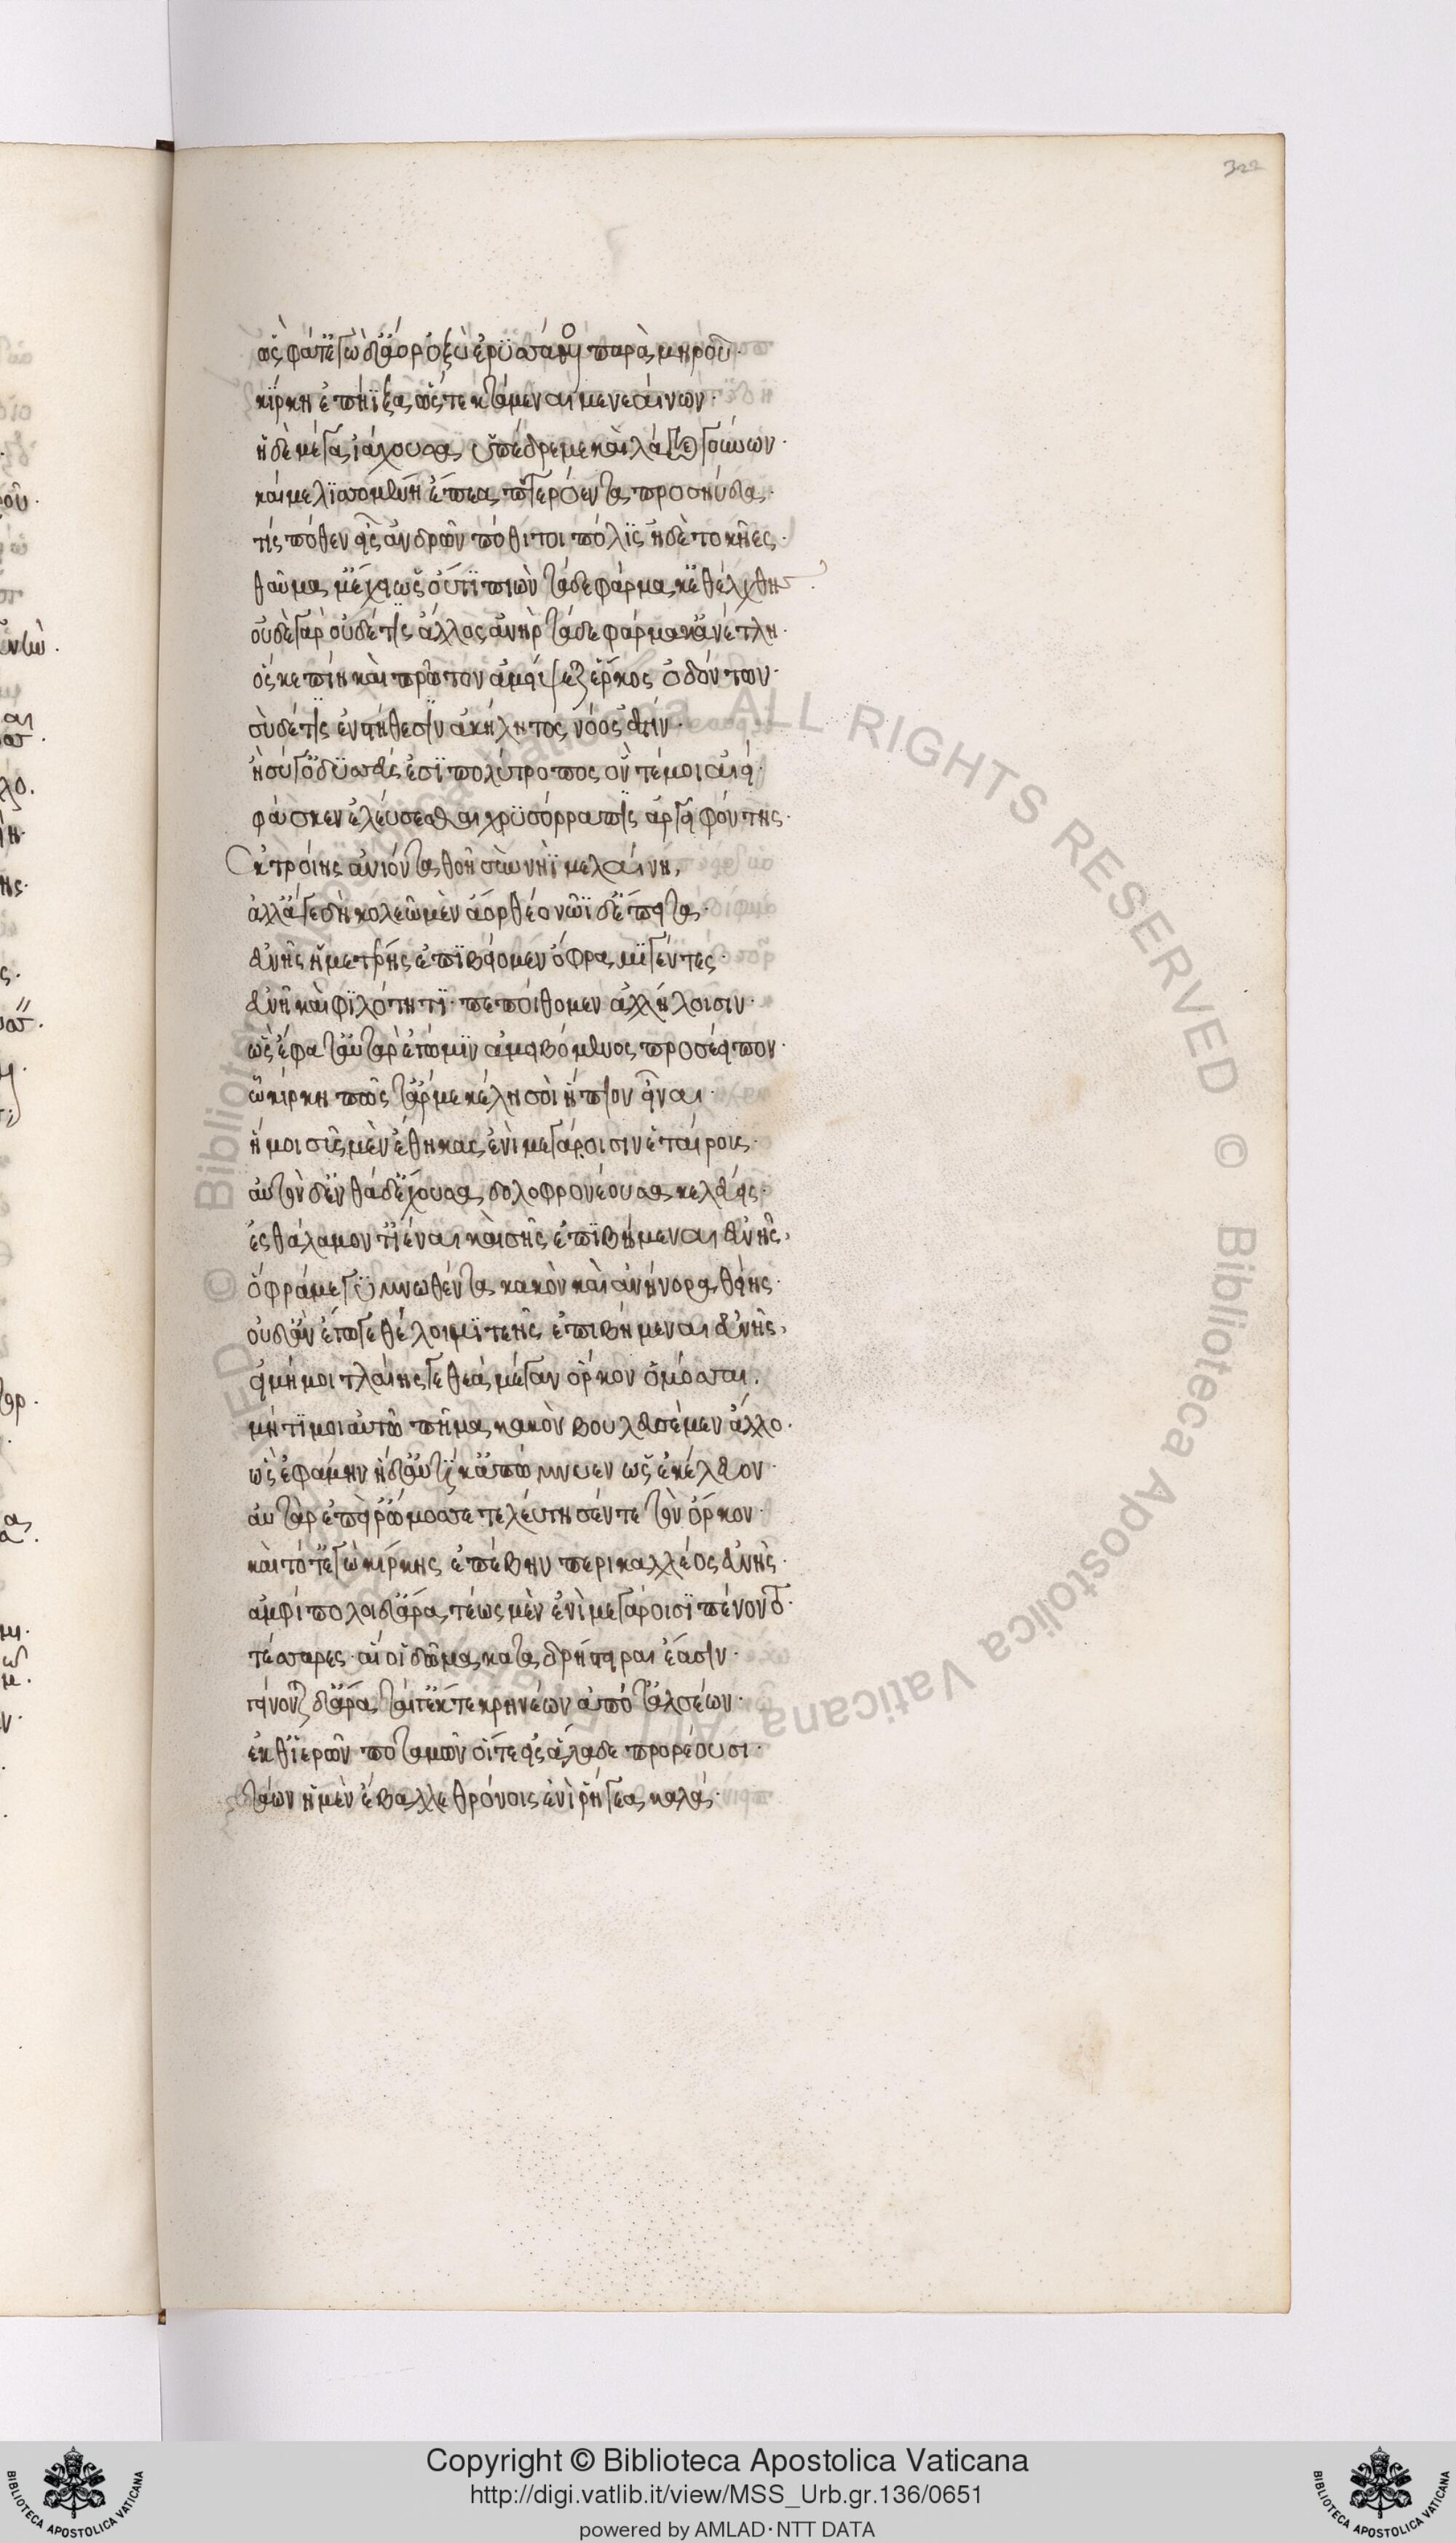 322
ὣς φάτ' ἐγὼ δ' ἄορ ὀξὺ ἐρυσσάμενος παρὰ μηροῦ·
κίρκη ἐπήϊξα ὥς τε κτάμεναι μενεαίνων·
ἡ δὲ μέγα ἰάχουσα ὑπέδραμε καὶ λάβε γούνων·
καί μ' ὀλοφυρομένη ἔπεα πτερόεντα προσηύδα·
τίς πόθεν εἶς ἀνδρῶν πόθι τοι πόλις ἠδὲ τοκῆες·
θαῦμα μ' ἔχει ὡς οὔτι πιὼν τάδε φάρμακ' ἐθέλχθης·
οὐδὲ γὰρ οὐδέ τις ἄλλος ἀνὴρ τάδε φάρμακ' ἀνέτλη·
ὅς κε πίη καὶ πρῶτον ἀμείψεται ἕρκος ὀδόντων·
σοὶ δέ τις ἐν στήθεσιν ἀκήλητος νόος ἐστίν·
ἢ σύ γ' ὀδυσσεύς ἐσι πολύτροπος ὅν τέ μοι αἰεί·
φάσκεν ἐλεύσεσθαι χρυσόρραπις ἀργειφόντης·
ἐκ τροίης ἀνιόντα θοῇ σὺν νηῒ μελαίνῃ,
ἀλλ' ἄγε δὴ κολεῷ μὲν ἄορ θέο νῶϊ δ' ἔπειτα·
εὐνῆς ἡμετέρης ἐπιβείομεν ὄφρα μιγέντες·
εὐνῇ καὶ φιλότητι· πεποίθομεν ἀλλήλοισιν·
ὣς ἔφατ' αὐτὰρ ἐγώ μιν ἀμειβόμενος προσέειπον·
ὦ κίρκη πῶς γάρ με κέλῃ σοὶ ἤπιον εἶναι·
ἥ μοι σῦς μὲν ἔθηκας ἐνὶ μεγάροισιν ἑταίρους·
αὐτὸν δ' ἐνθάδ' ἔχουσα δολοφρονέουσα κελεύεις·
ἐς θάλαμόν τ' ἰέναι καὶ σῆς ἐπιβήμεναι εὐνῆς,
ὄφρα με γυμνωθέντα κακὸν καὶ ἀνήνορα θείης·
οὐδ' ἂν ἔγωγ' ἐθέλοιμι τεῆς ἐπιβήμεναι εὐνῆς,
εἰ μή μοι τλαίης γε θεά μέγαν ὅρκον ὀμόσσαι.
μή τι μοι αὐτῷ πῆμα κακὸν βουλευσέμεν ἄλλο·
ὣς ἐφάμην ἡ δ' αὐτίκ' ἀπώμνυεν ὡς ἐκέλευον·
αὐτὰρ ἐπεί ῥ' ὄμοσσε τελεύτησέν τε τὸν ὅρκον·
καὶ τότ' ἐγὼ κίρκης ἐπέβην περικαλλέος εὐνῆς·
ἀμφίπολοι δ' ἄρα τέως μὲν ἐνὶ μεγάροισι πένοντο·
τέσσαρες· αἵ οἱ δῶμα κάτα δρήστειραι ἔασιν·
γίνονται δ' ἄρα ταί τ' ἔκ τε κρηνέων ἀπό τ' ἀλσέων·
ἐκ θ' ἱερῶν ποταμῶν οἵ τ' εἰς ἅλαδε προρέουσι·
τάων ἡ μὲν ἔβαλλε θρόνοις ἔνι ῥήγεα καλά·
© Biblioteca Apostolica Vaticana ALL RIGHTS RESERVED © Biblioteca Apostolica Vaticana ALL RIGHTS RESERVED
Copyright © Biblioteca Apostolica Vaticana
http://digi.vatlib.it/view/MSS_Urb.gr.136/0651
powered by AMLAD·NTT DATA
BIBLIOTECA APOSTOLICA VATICANA
BIBLIOTECA APOSTOLICA VATICANA